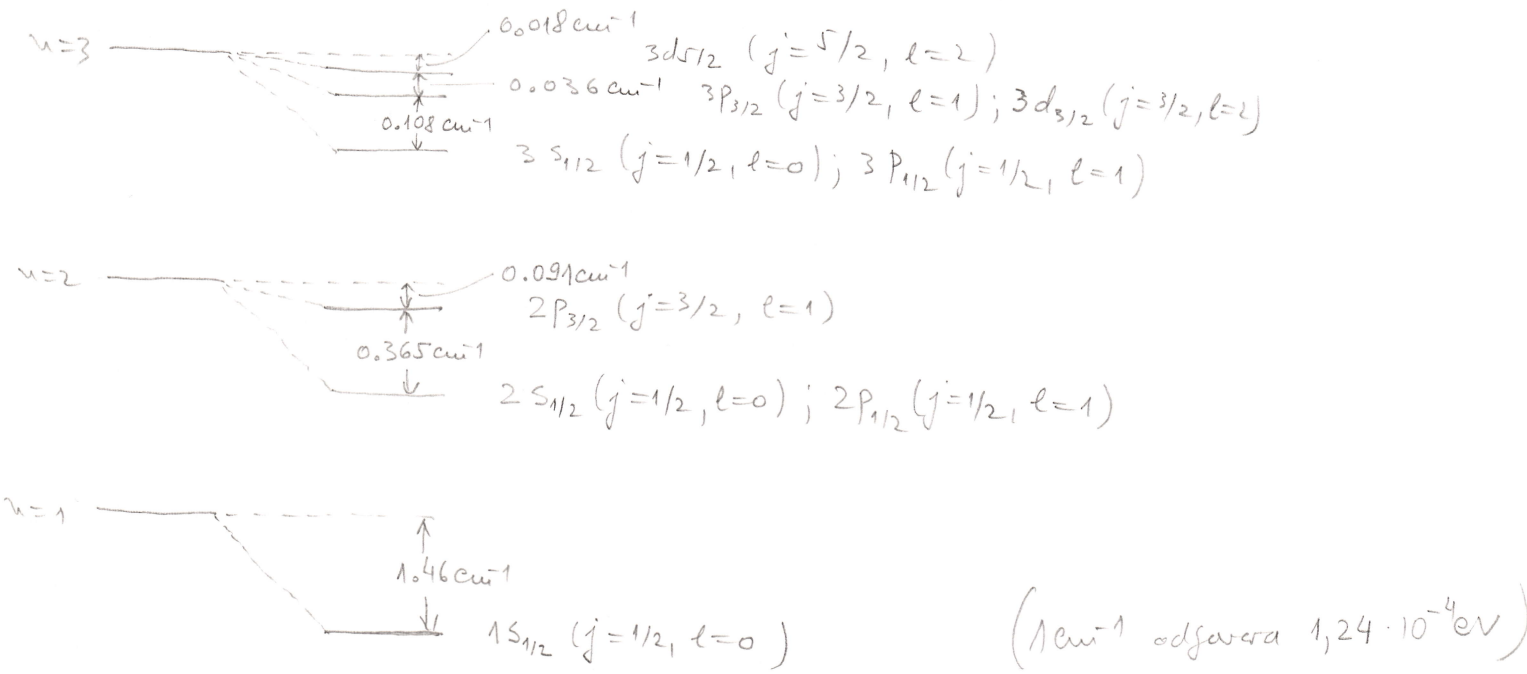 n=3
0.018 cm⁻¹
3d5/2 (j=5/2, l=2)
0.036 cm⁻¹ 3P3/2 (j=3/2, l=1); 3d3/2 (j=3/2, l=2)
0.108 cm⁻¹
3 S1/2 (j=1/2, l=0); 3 P1/2 (j=1/2, l=1)
n=2
0.091 cm⁻¹
2P3/2 (j=3/2, l=1)
0.365 cm⁻¹
2 S1/2 (j=1/2, l=0); 2P1/2 (j=1/2, l=1)
n=1
1.46 cm⁻¹
1S1/2 (j=1/2, l=0)
(1 cm⁻¹ odgovara 1,24·10⁻⁴ eV)